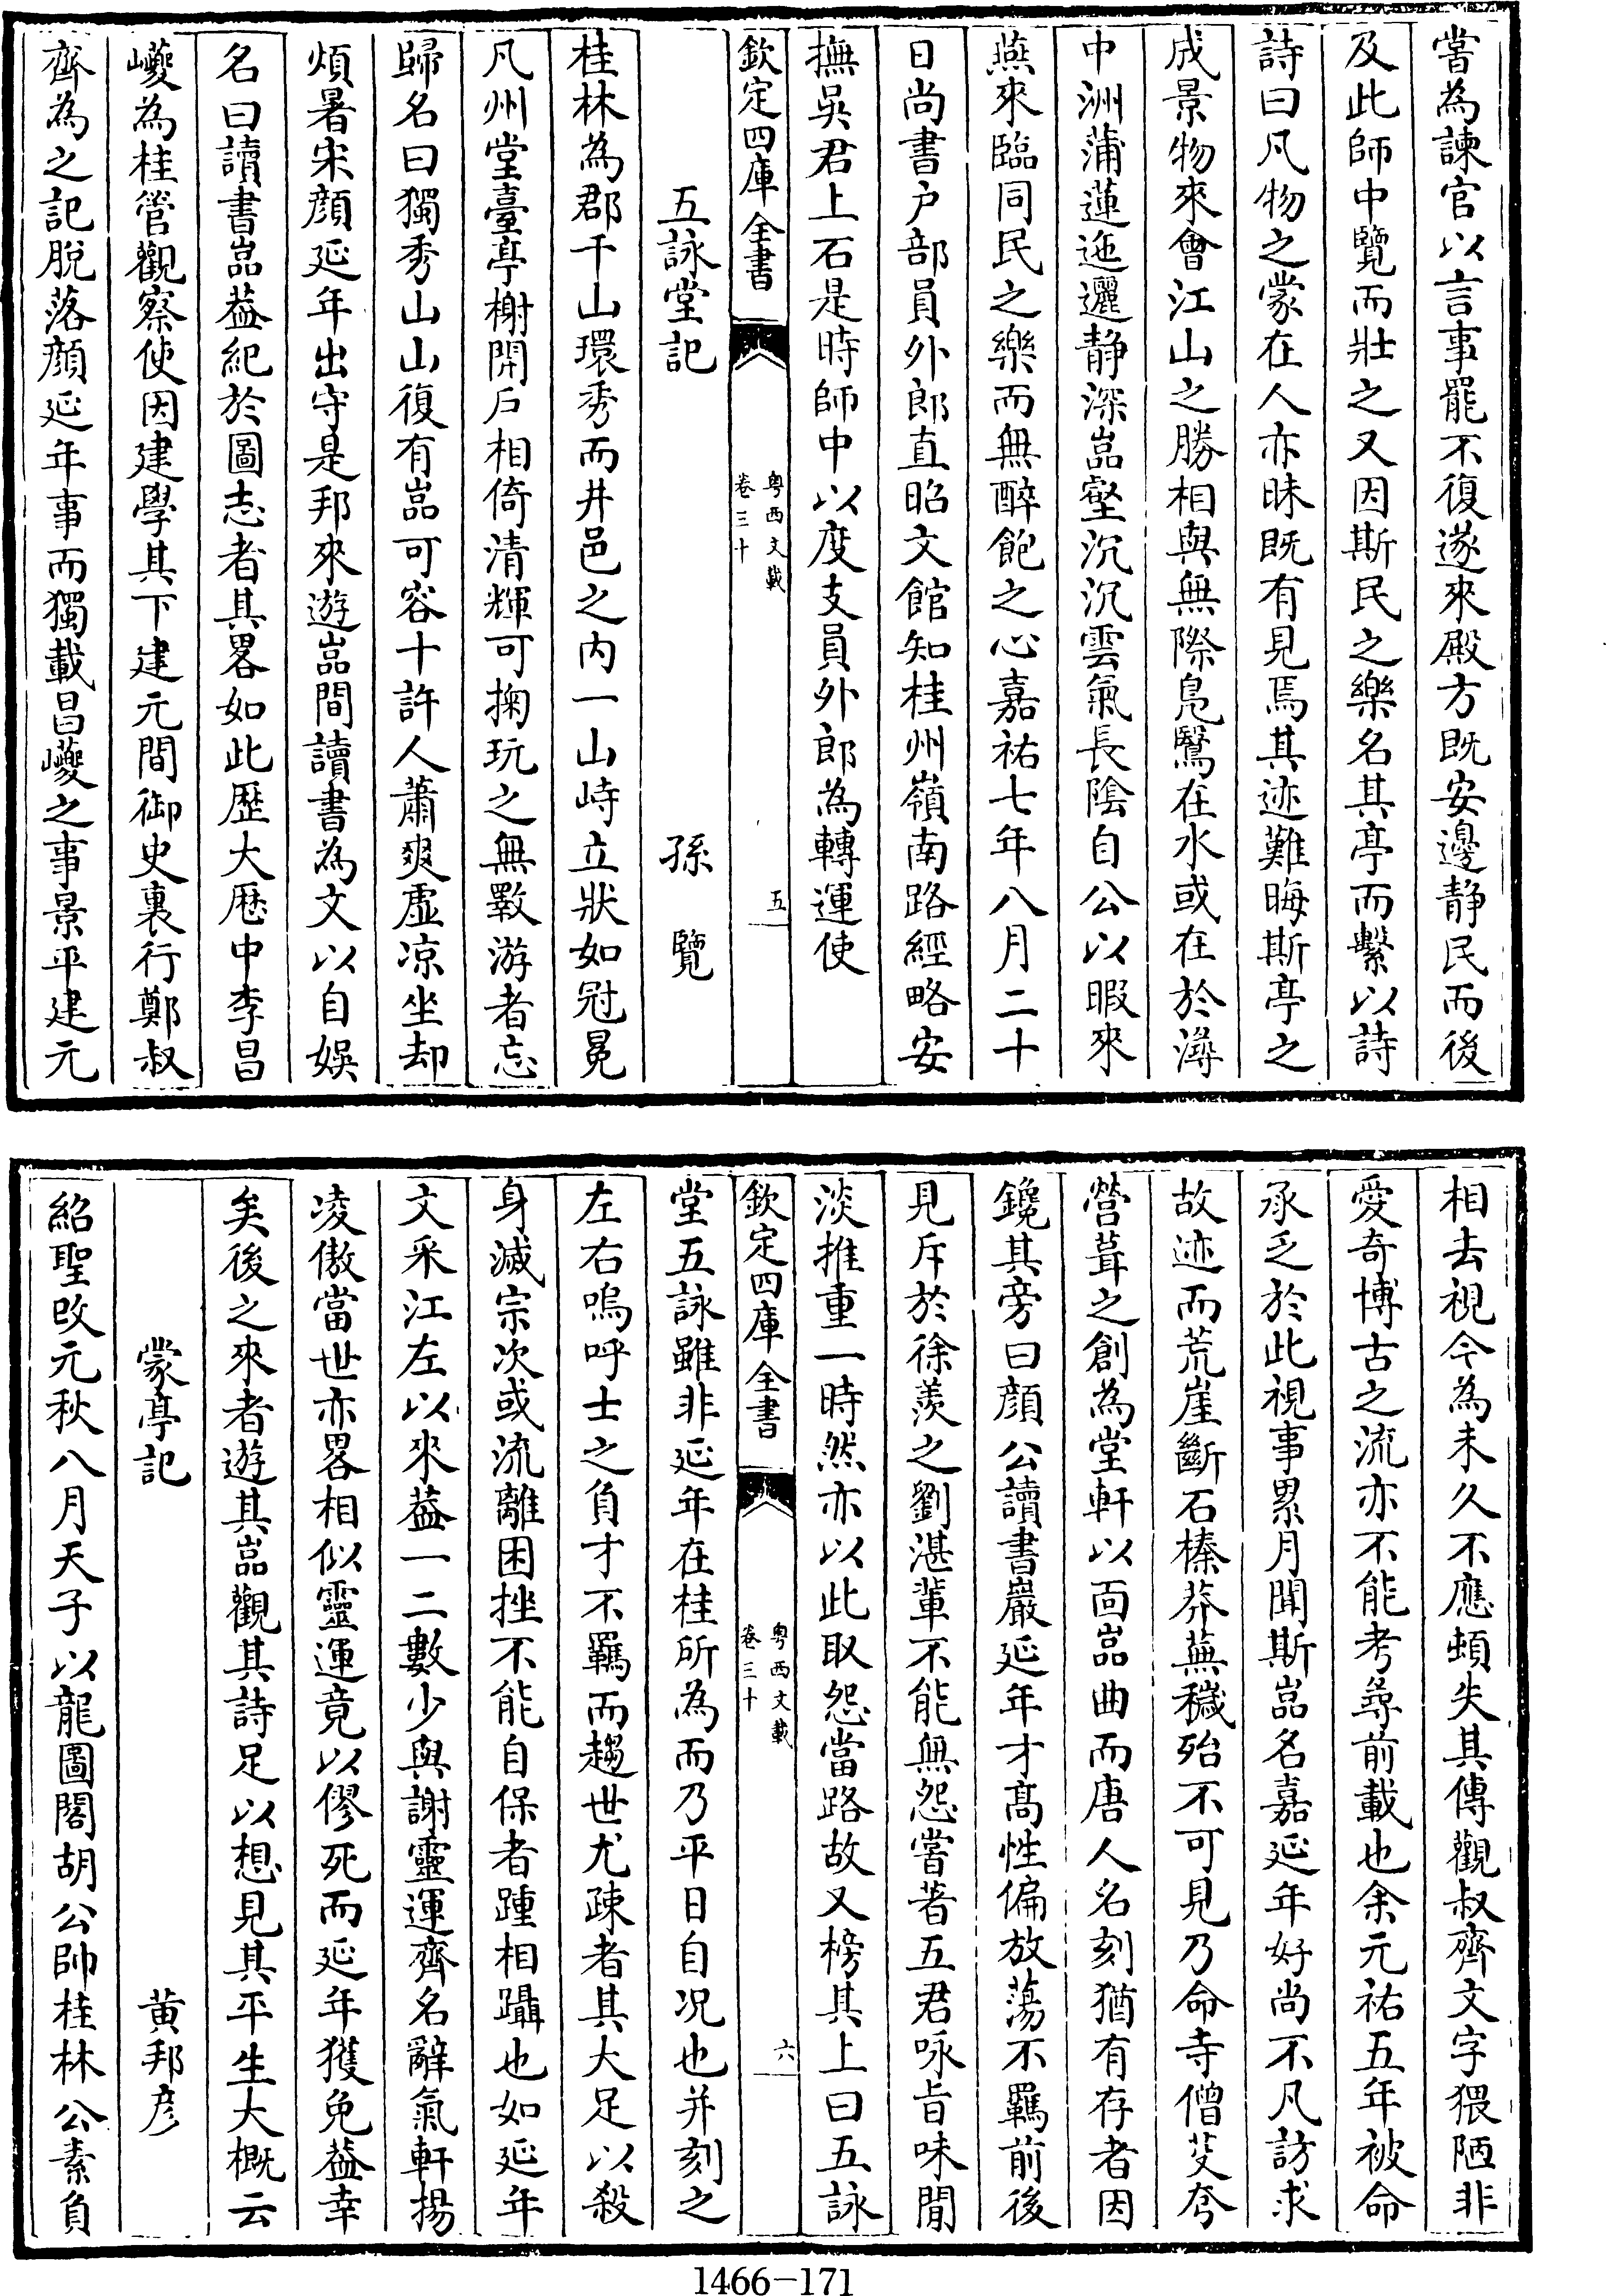 嘗為諫官以言事罷不復遂來殿方既安邊静民而後
及此師中覽而壯之又因斯民之樂名其亭而繫以詩
詩曰凡物之蒙在人亦昧既有見焉其迹難晦斯亭之
成景物來會江山之勝相與無際鳧鷖在水或在於潯
中洲蒲蓮迤邐静深嵓壑沉沉雲氣長陰自公以暇來
燕來臨同民之樂而無醉飽之心嘉祐七年八月二十
日尚書户部員外郎直昭文館知桂州嶺南路經略安
撫吳君上石是時師中以度支員外郎為轉運使
欽定四庫全書
粤西文載
卷三十
五
五詠堂記
孫覽
桂林為郡千山環秀而井邑之内一山峙立狀如冠冕
凡州堂臺亭榭開户相倚清輝可掬玩之無斁游者忘
歸名曰獨秀山山復有嵓可容十許人蕭爽虛凉坐却
煩暑宋顔延年出守是邦來遊嵓間讀書為文以自娛
名曰讀書嵓葢紀於圖志者其畧如此歷大厯中李昌
巙為桂管觀察使因建學其下建元間御史裏行鄭叔
齊為之記脫落顔延年事而獨載昌巙之事景平建元
相去視今為未久不應頓失其傳觀叔齊文字猥陋非
愛奇博古之流亦不能考尋前載也余元祐五年被命
承乏於此視事累月聞斯嵓名嘉延年好尚不凡訪求
故迹而荒崖斷石榛莽蕪穢殆不可見乃命寺僧芟夸
營葺之創為堂軒以面嵓曲而唐人名刻猶有存者因
鑱其旁曰顔公讀書巖延年才髙性偏放蕩不羈前後
見斥於徐羡之劉湛輩不能無怨嘗著五君咏旨味閒
淡推重一時然亦以此取怨當路故又榜其上曰五詠
欽定四庫全書
粤西文載
卷三十
六
堂五詠雖非延年在桂所為而乃平日自况也并刻之
左右嗚呼士之負才不羈而趨世尤疎者其大足以殺
身滅宗次或流離困挫不能自保者踵相躡也如延年
文采江左以來葢一二數少與謝靈運齊名辭氣軒揚
凌傲當世亦畧相似靈運竟以僇死而延年獲免葢幸
矣後之來者遊其嵓觀其詩足以想見其平生大概云
蒙亭記
黄邦彦
紹聖改元秋八月天子以龍圖閣胡公帥桂林公素負
1466-171